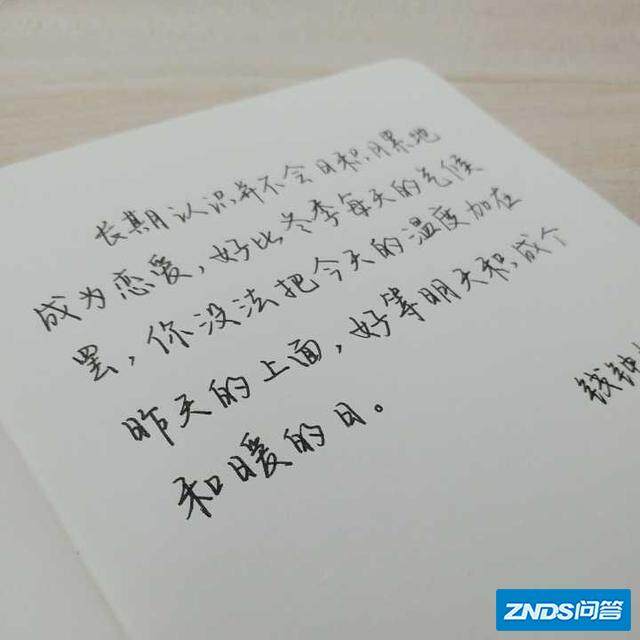 长期认识并不会日积月累地
成为恋爱，好比冬季每天的气候
罢，你没法把今天的温度加在
昨天的上面，好等明天积成个
和暖的日。
钱钟
ZNDS问答